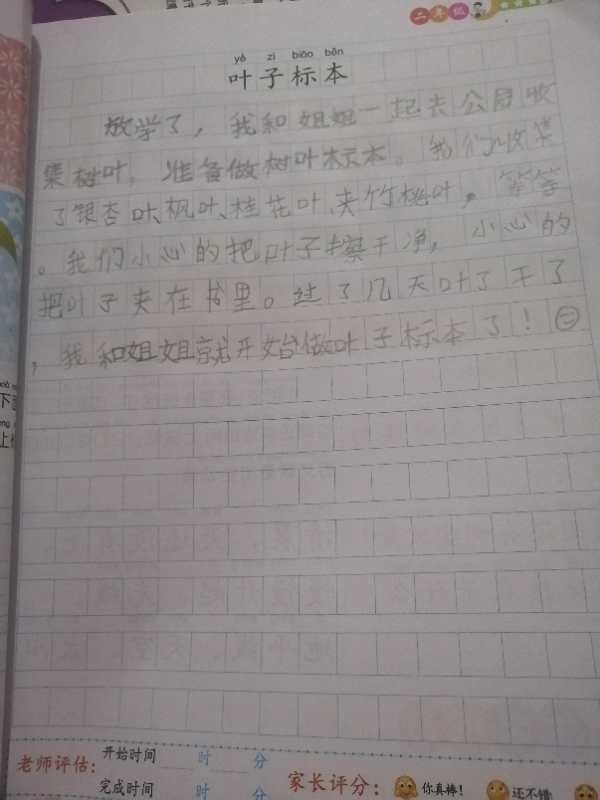 二年级
yè zi biāo běn
叶子标本
放学了，我和姐姐一起去公园收
集树叶，准备做树叶标本。我们收集
了银杏叶、枫叶、桂花叶、夹竹桃叶，等等
。我们小心的把叶子擦干净，小心的
把叶子夹在书里。过了几天叶了干了
，我和姐姐就开始做叶子标本了！
老师评估：
开始时间 时 分
完成时间 时 分
家长评分：
你真棒！
还不错